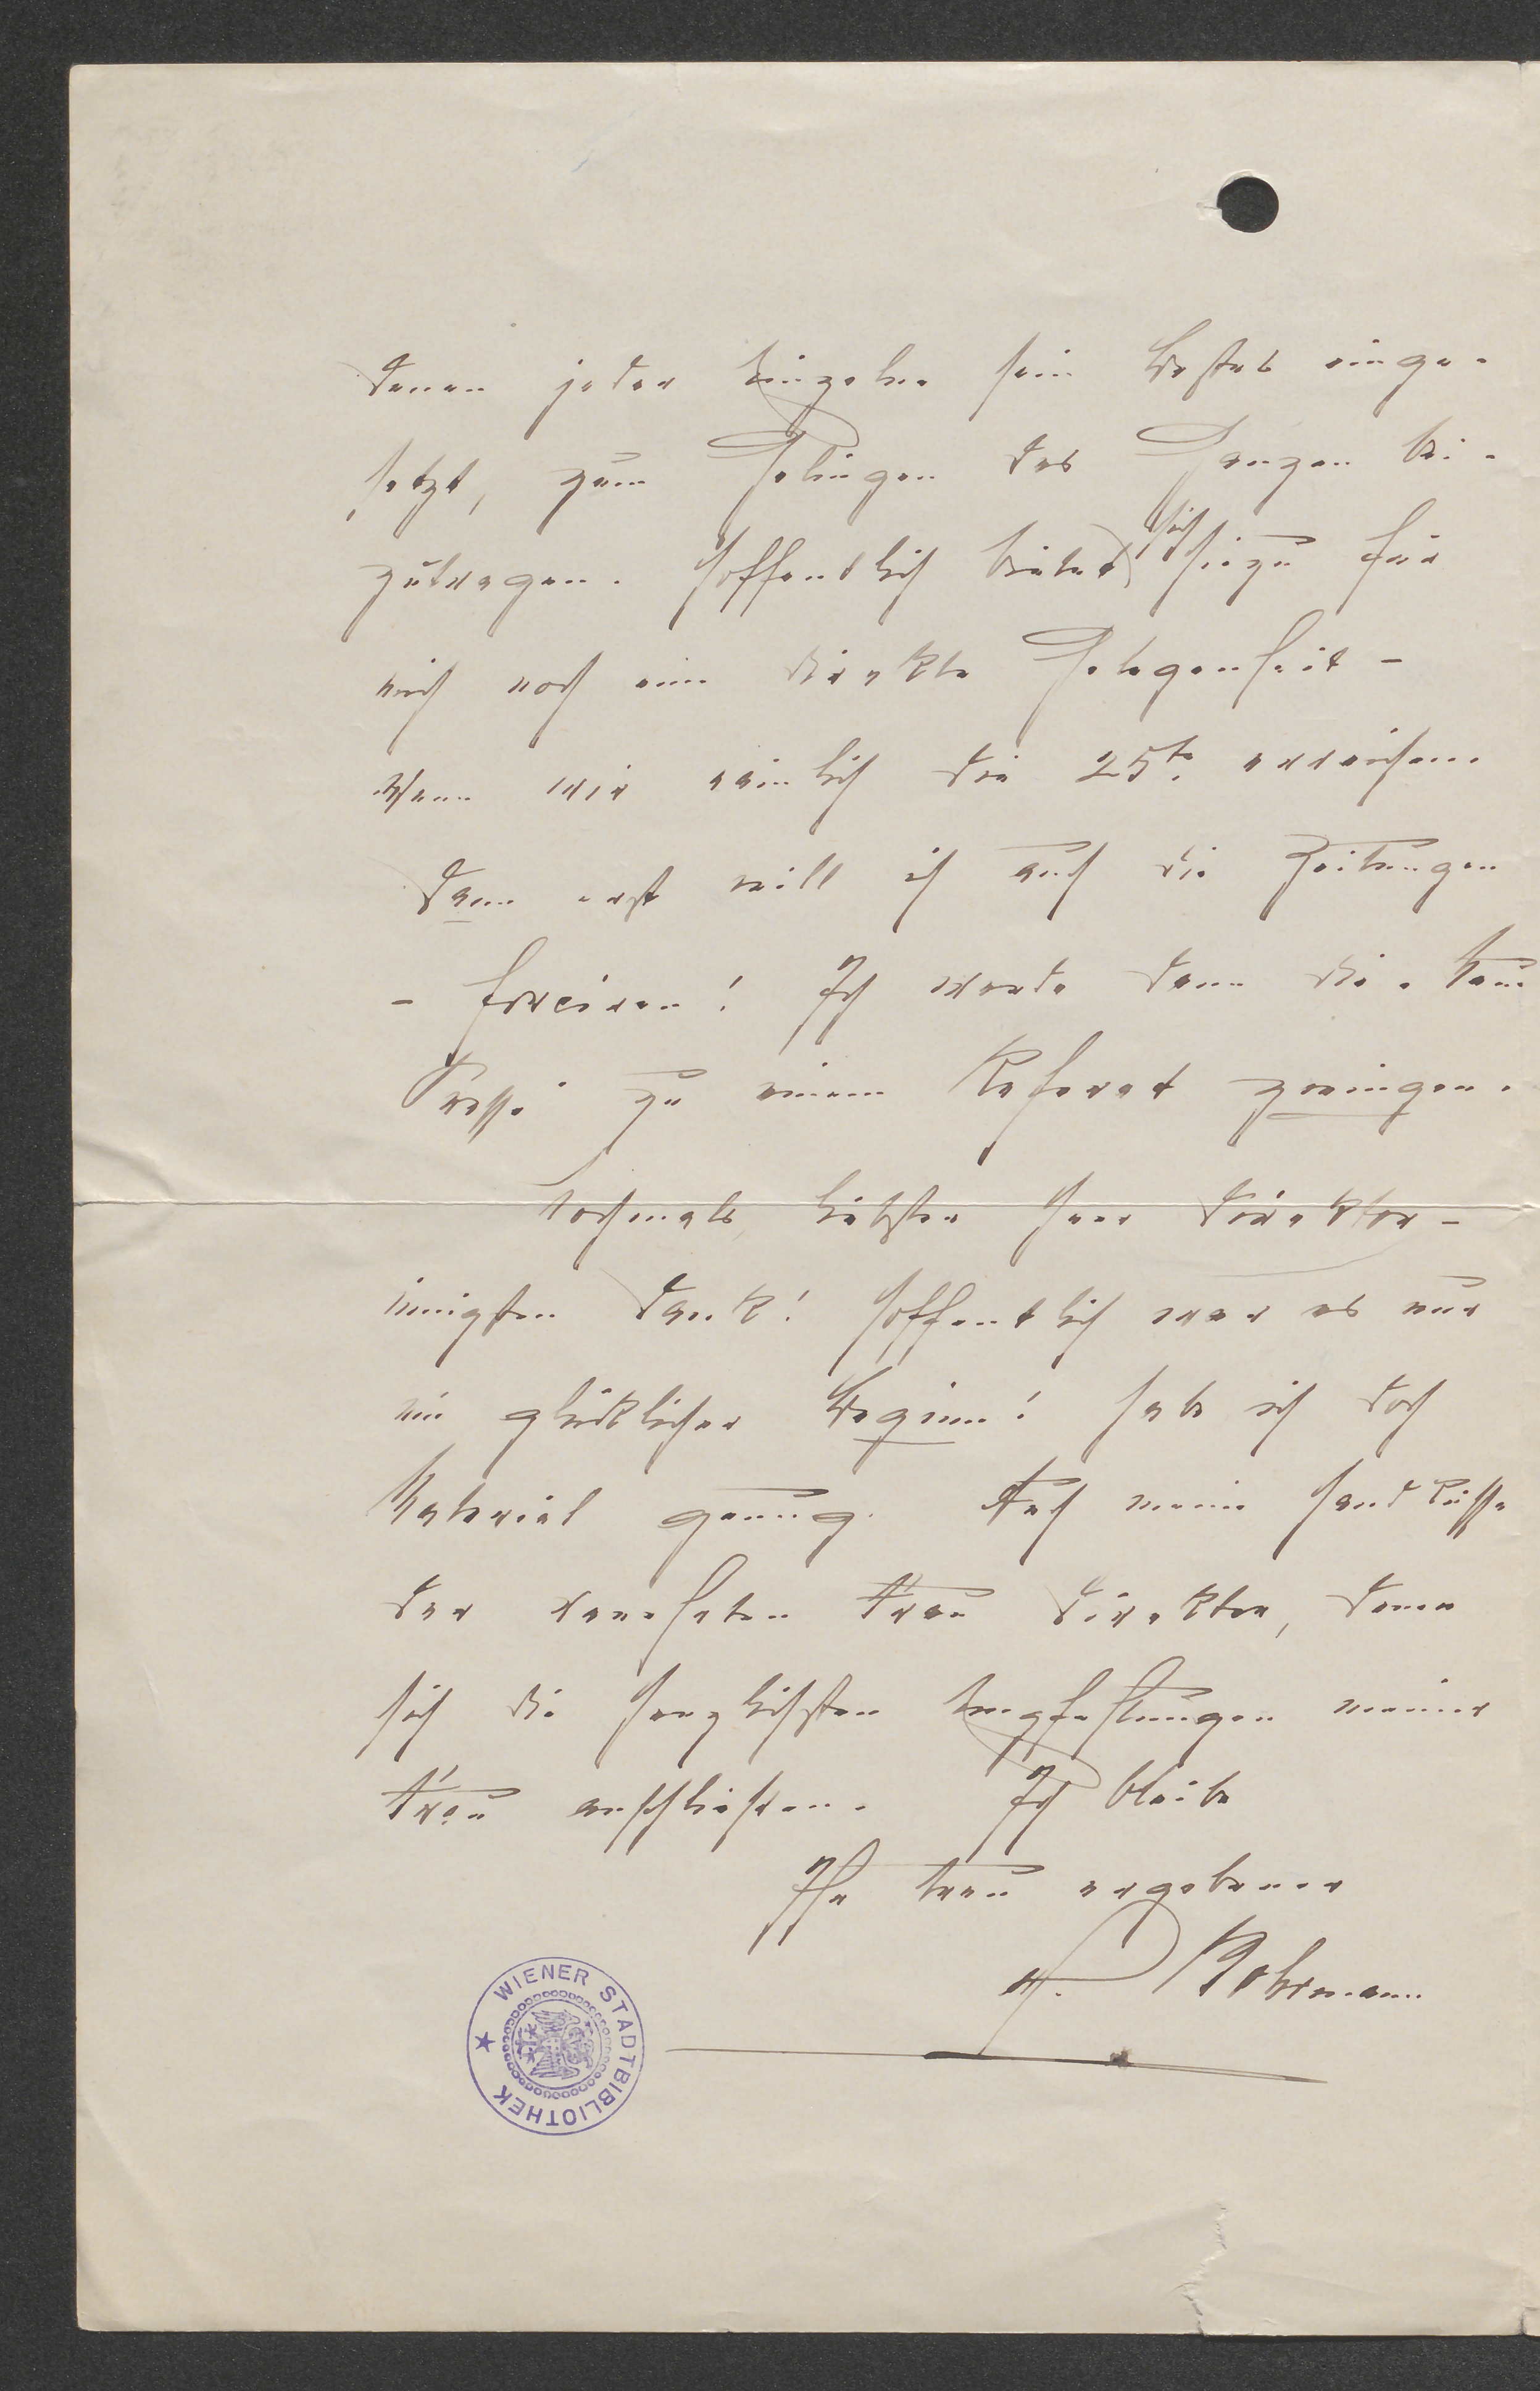 denen jeder Einzelne sein Bestes einge-
setzt, zum Gelingen des Ganzen bei-
zutragen. Hoffentlich bietet sich hiezu für
mich noch eine direkte Gelegenheit -
Wenn wir reinlich die 25te. erreichen.
Dann erst will ich auch die Zeitungen
- forciren! Ich werde dann die neue
Presse zu einem Referat zwingen.
Nochmals, liebster Herr Direktor -
innigsten Dank! Hoffentlich war es nur
ein glücklicher Beginn! habe ich doch
Material genug. Auch meine Handküsse
der verehrten Frau Direktor, denen
sich die herzlichsten Empfehlungen meiner
Frau anschließen. Ich bleibe
Ihr treu ergebener
Rohrmann
WIENER STADTBIBLIOTHEK